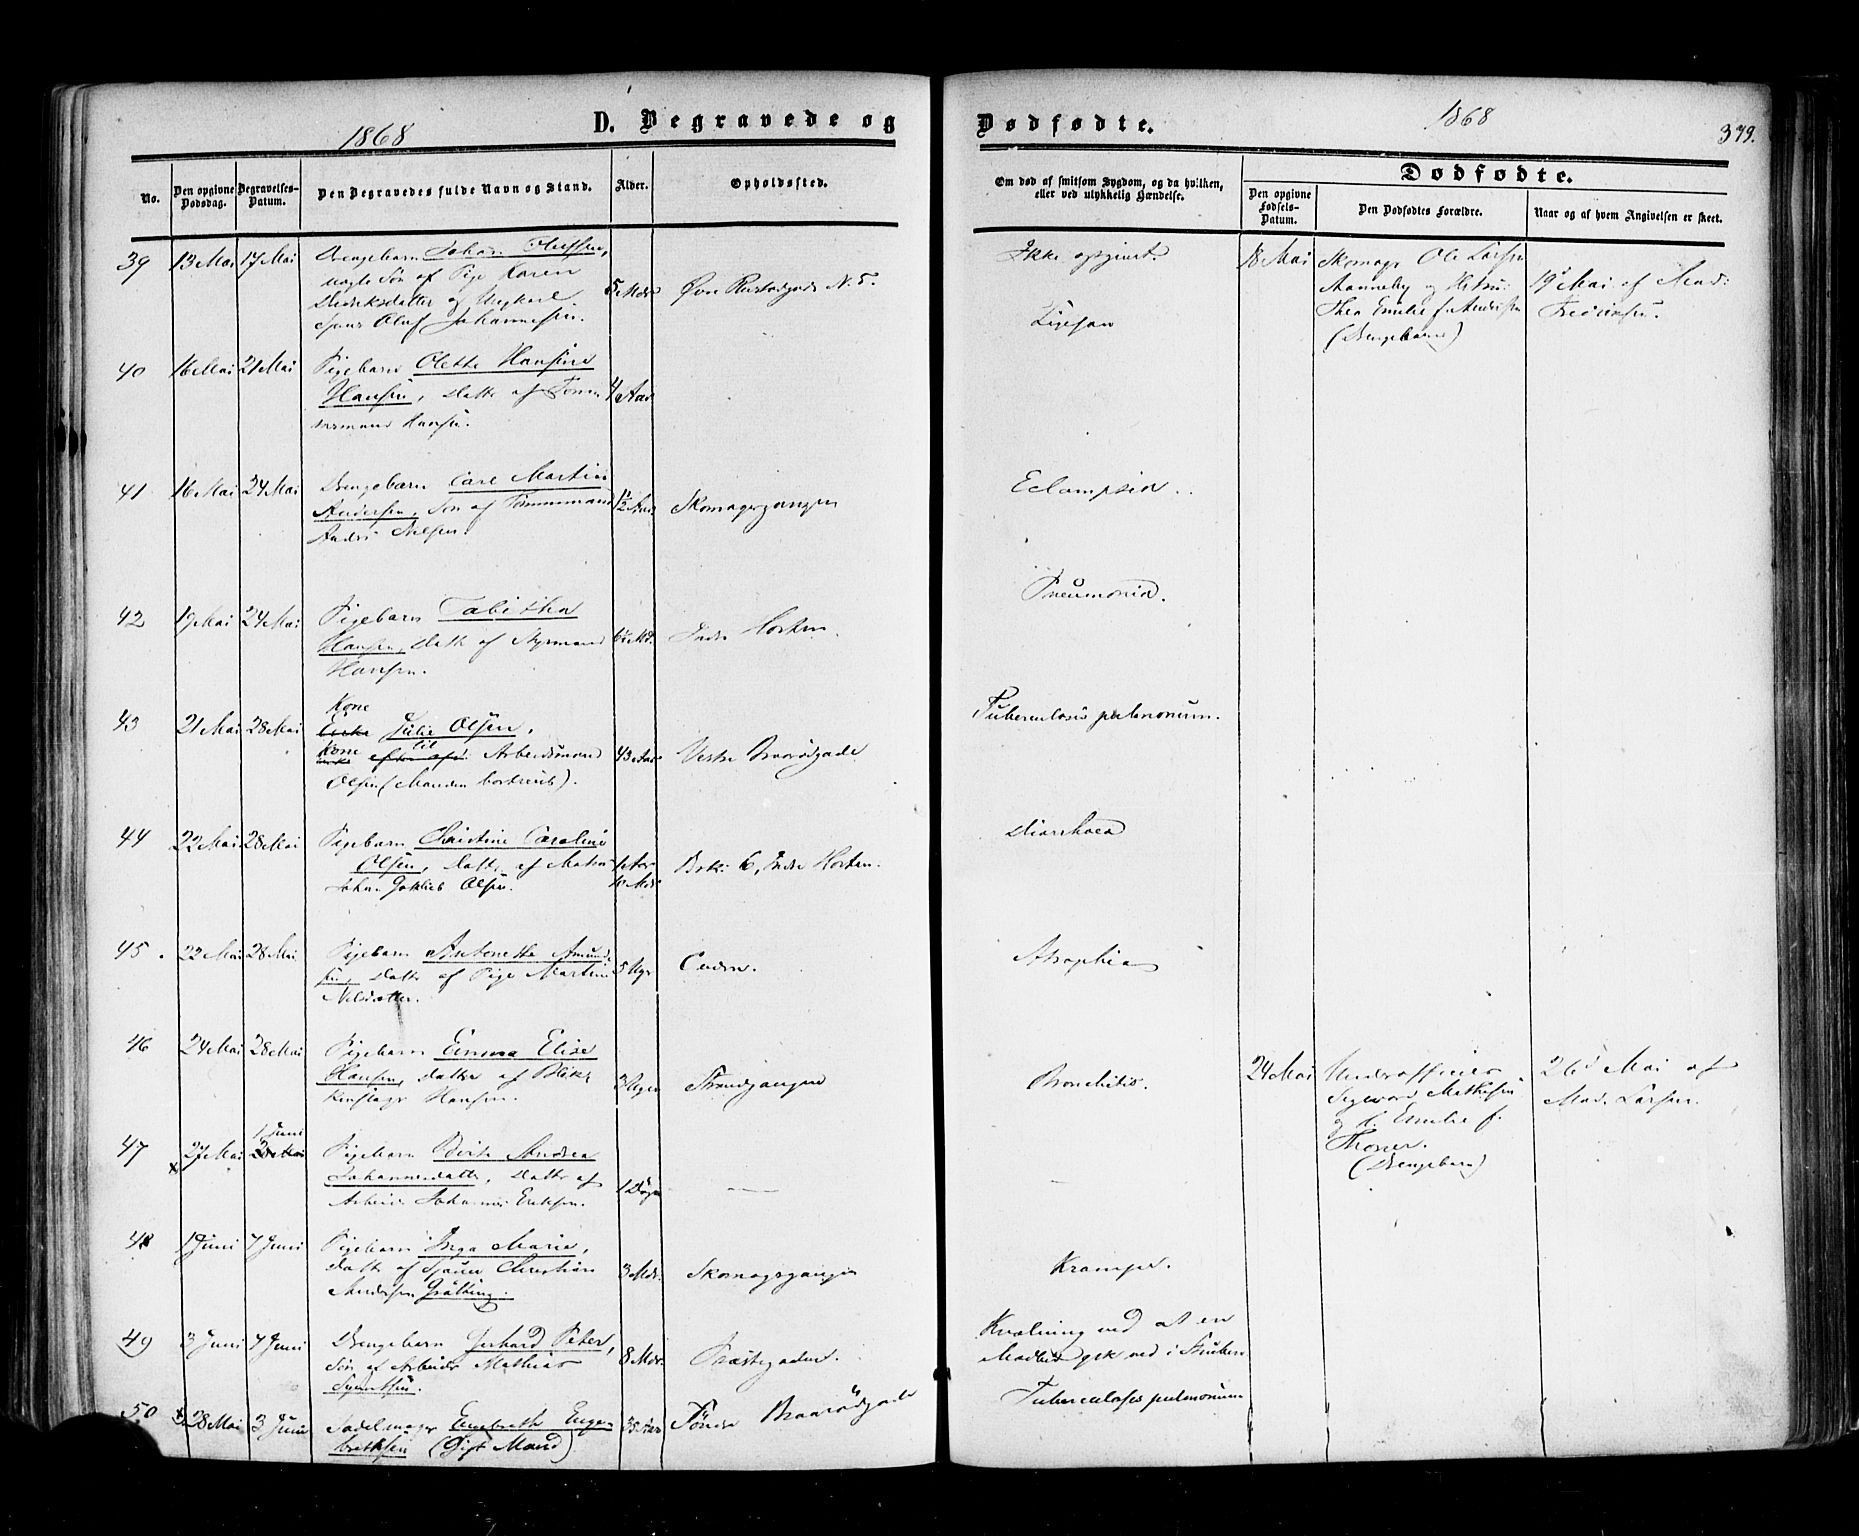 1868
D. Begravede og
Dødfødte.
1868
379.
No.
Den opgivne Dødsdag.
Begravelses-Datum.
Den Begravedes fulde Navn og Stand.
Alder.
Opholdssted.
Om død af smitsom Sygdom, og da hvilken,
eller ved ulykkelig Hændelse.
Dødfødte.
Den opgivne Fødsels-Datum.
Den Dødfødtes Forældre.
Naar og af hvem Angivelsen er skeet.
39 13 Mai 17 Mai Drengebarn Johan Olufsen,
uægte Søn af Pige Karen
Diderksdatter og Ungkarl
Oluf Johannesen.
5 Mdr Øvre N. 5.
Ikke opgivet.
18 Mai Skomager Ole Larsen
og Hustru
Thea Emilie f. Andersen
(Drengebarn)
19 Mai af Mad:
40 16 Mai 21 Mai Pigebarn Olette Hansine
Hansen, Datter af Tøm
mermand Hansen.
4 Aar
41 16 Mai 24 Mai Drengebarn Carl Martin
Andersen, Søn af Tømmermand
Anders Nilsen.
Skomagergangen
Eclampsia.
42 19 Mai 24 Mai Pigebarn Tabitha
Hansen, Datter af Styrmand
Hansen.
Indre Horten.
Pneumonia.
43 21 Mai 28 Mai Kone
Julie Olsen,
Kone til Arbeidsmand
Olsen (Manden bortreist).
43 Aar Vestre Braarudgade
Tuberculosis pulmonum.
44 22 Mai 28 Mai Pigebarn Christine Caroline
Olsen, Datter af Matros
Johan Gotlieb Olsen.
1 Aar
10 Mdr
Brk: 6, Indre Horten.
Diarrhoea
45 22 Mai 28 Mai Pigebarn Antonette Amund
sen, Datter af Pige Martine
Nilsdatter.
5 Uger
Atrophia
46 24 Mai 28 Mai Pigebarn Emma Elise
Hansen, Datter af Blik
kenslager Hansen.
3 Uger Strandgangen
Bronchitis.
24 Mai Underofficier
Sigward Mathisen
og h. Emilie f.
(Drengebarn)
26 Mai af
Mad. Larsen.
47 27 Mai 1 Juni
Pigebarn Berte Andrea
Johannesdatter, Datter af
Arbeid. Johannes Eriksen.
1 Døgn —
48 1 Juni 7 Juni Pigebarn Inga Marie,
Datter af Christian
Andersen Grötting.
3 Mdr. Skomagergangen
Krampe.
49 3 Juni 7 Juni Drengebarn Gerhard Peter,
Søn af Arbeider Mathias
Syvertsen.
8 Mdr. Præstegaden.
Kvælning ved at en
Madbid gik ned i Struben
50 28 Mai 3 Juni Sadelmager Engebreth Enge
brethsen (Gift Mand)
35 Aar Søndre Braarudgade
Tuberculosis pulmonum